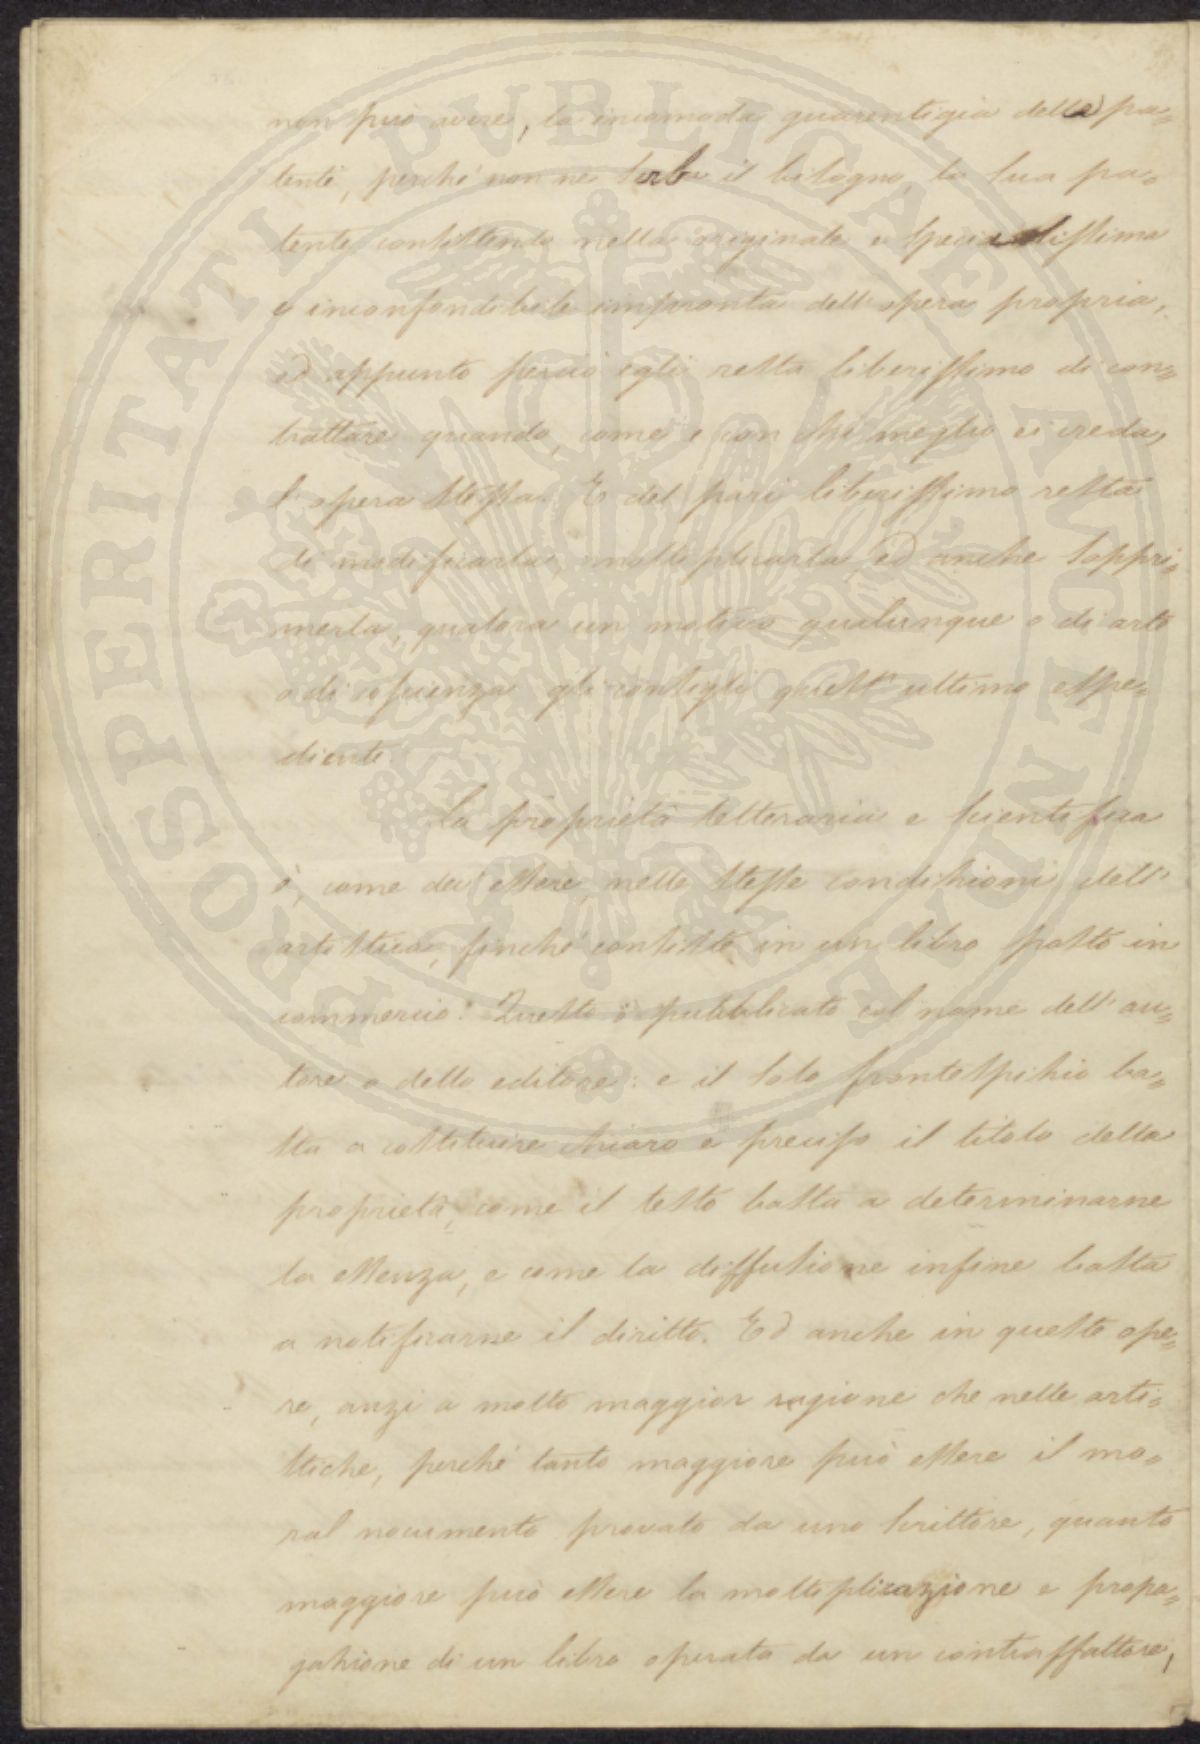 non può avere, la incomoda guarentigia della pa=
tente, perché non ne serba il bisogno, la sua pa=
tente consistendo nella originale e specialissima
e inconfondibile impronta dell'opera propria,
ed appunto perciò egli resta liberissimo di con=
trattare quando, come e con chi meglio ei creda,
l'opera stessa. E del pari liberissimo resta
di modificarla, moltiplicarla, ed anche soppri=
merla, qualora un motivo qualunque o di arte
o di coscienza gli consigli quest'ultimo espe=
diente.
La proprietà letteraria e scientifica
è, come dev'essere, nelle stesse condizioni dell'
artistica, finché consiste in un libro posto in
commercio. Questo è pubblicato col nome dell'au=
tore o dello editore: e il solo frontespizio ba=
sta a costituire chiaro e preciso il titolo della
proprietà, come il testo basta a determinarne
la essenza, e come la diffusione infine basta
a notificarne il diritto. Ed anche in queste ope=
re, anzi a molto maggior ragione che nelle arti=
stiche, perché tanto maggiore può essere il mo=
ral nocumento provato da uno scrittore, quanto
maggiore può essere la moltiplicazione e propa=
gazione di un libro operata da un contraffattore,
PROSPERITATI PVBLICAE AVGENDAE